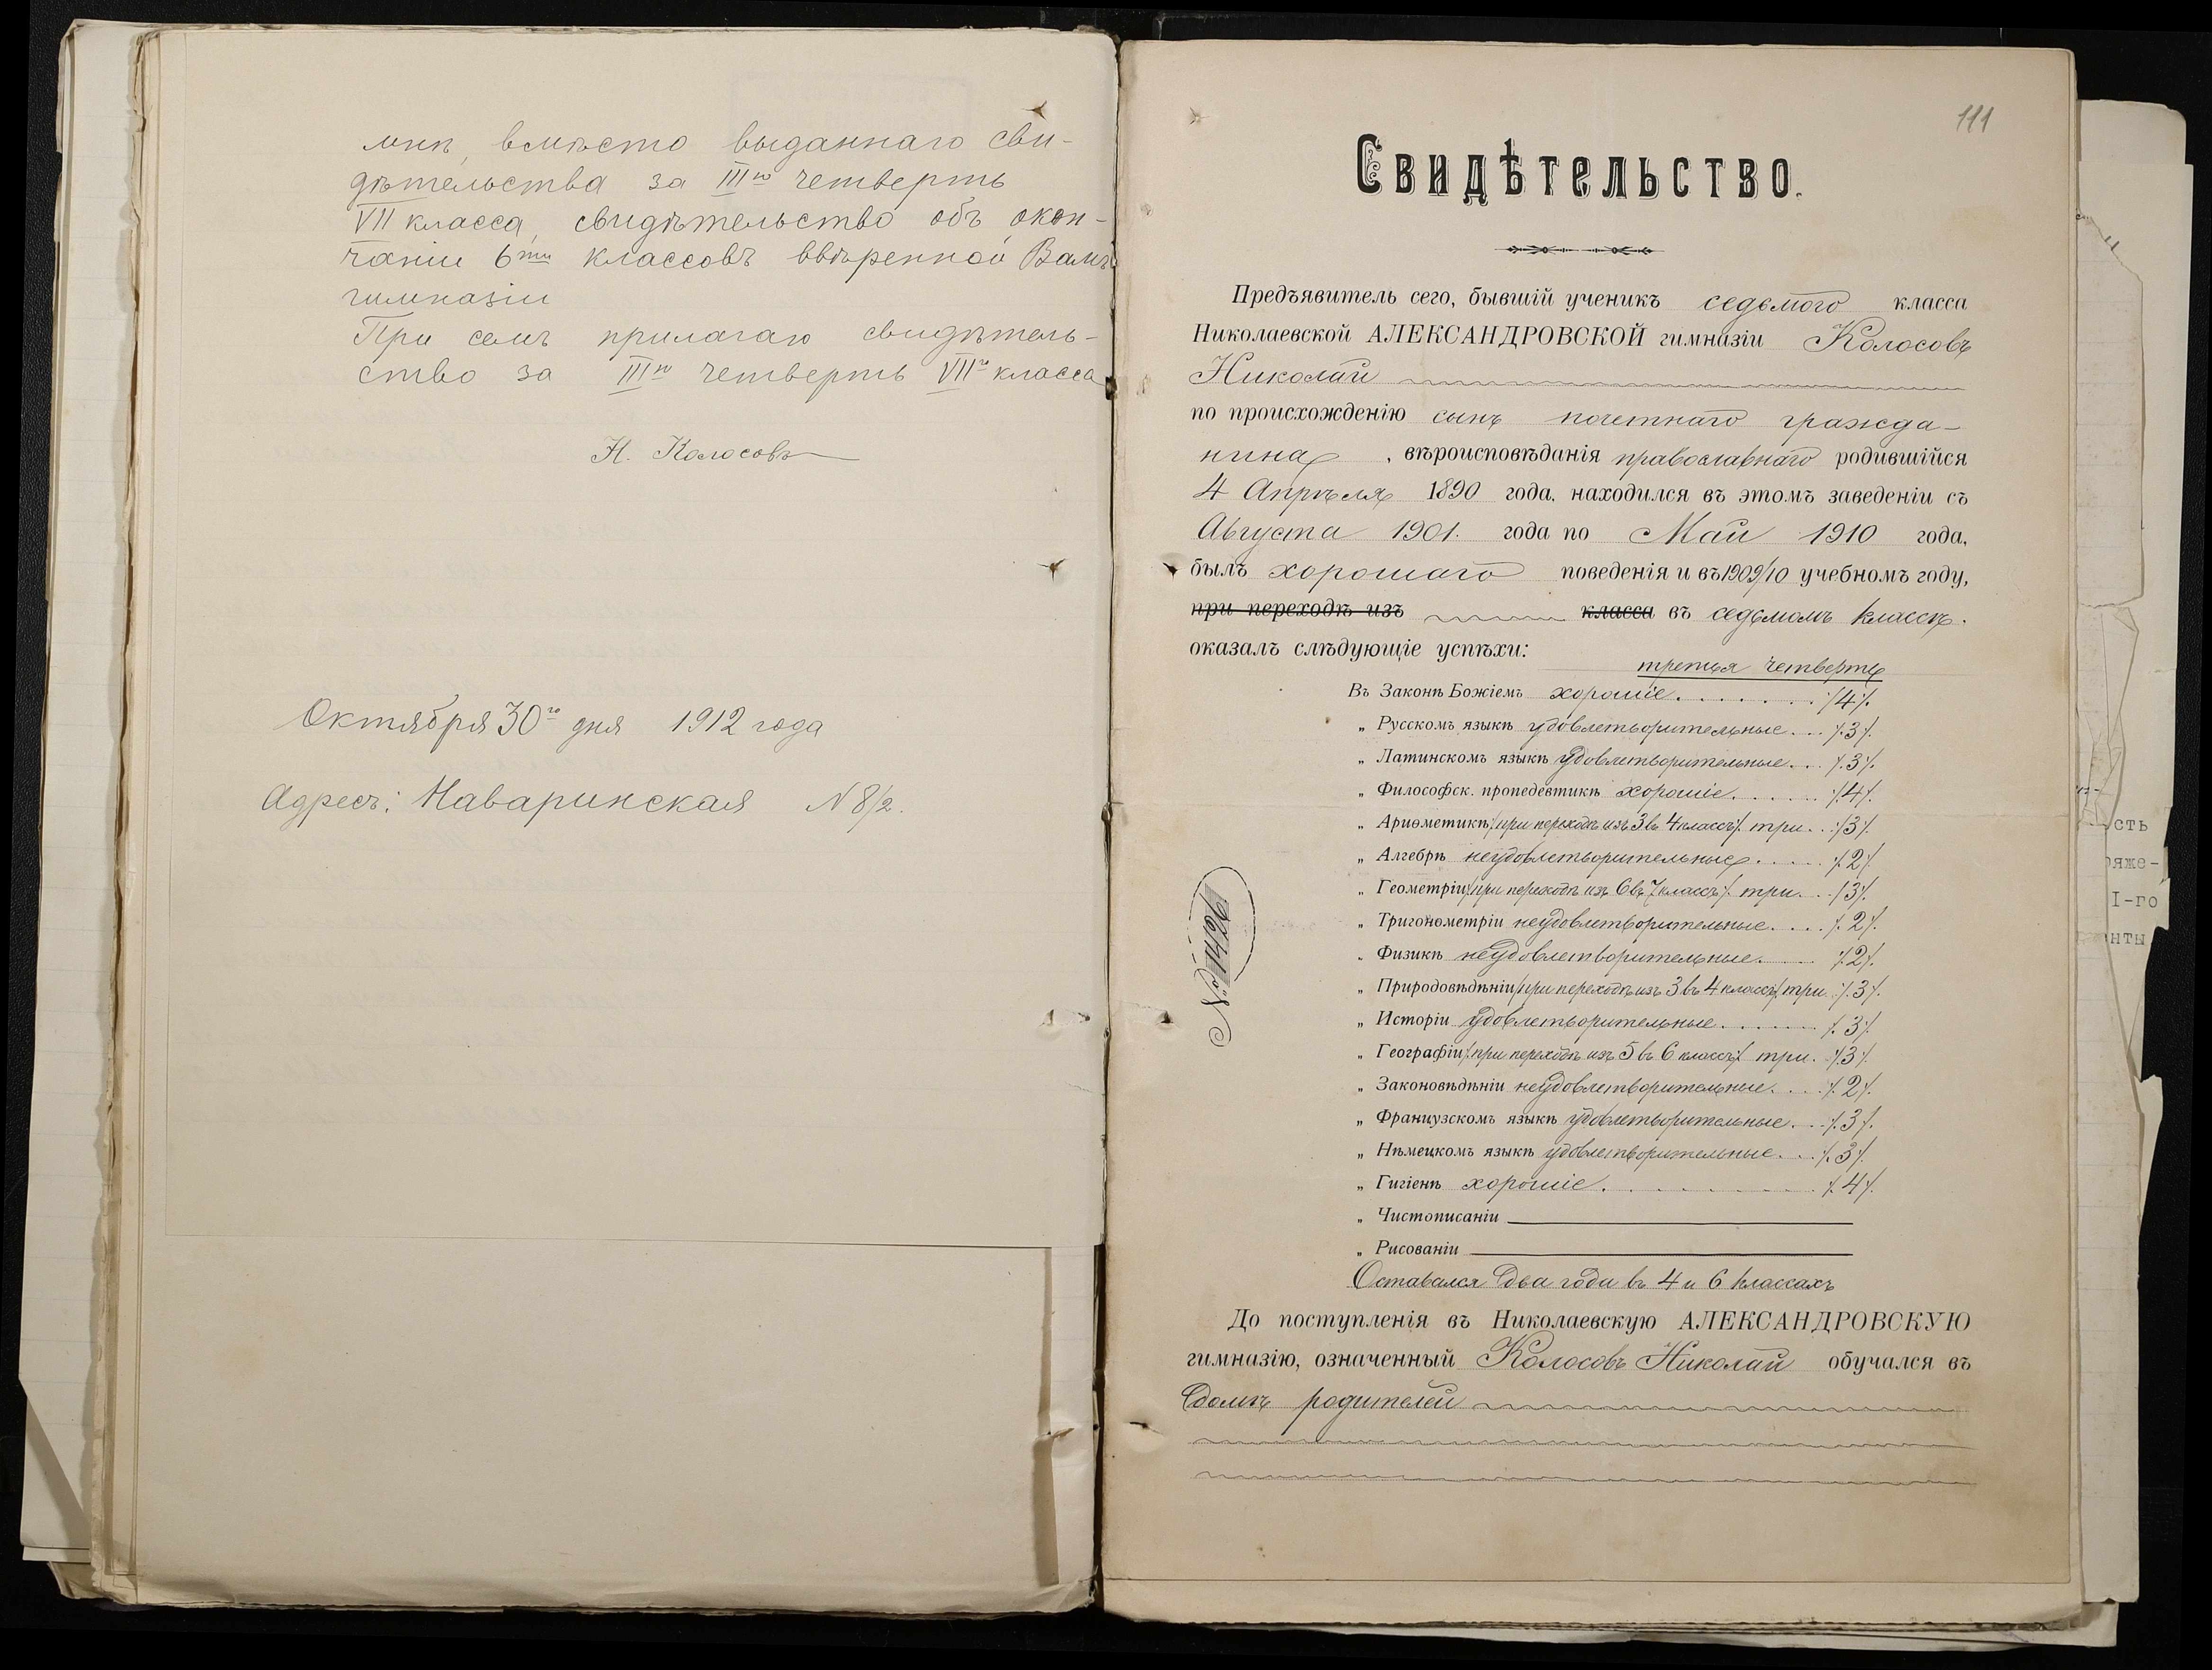 мнѣ, вмѣсто выданнаго сви-
дѣтельства за IIIю четверть
VII класса, свидѣтельство объ окон-
чаніи 6ти классовъ ввѣренной Вамъ
гимназіи
При семъ прилагаю свидѣтель-
ство за IIIю четверть VIIго класса
Н. Колосовъ
Октября 30го дня 1912 года
Адресъ: Наваринская N 8/2.
111
Свидѣтельство.
Предъявитель сего, бывшій ученикъ седьмого класса
Николаевской АЛЕКСАНДРОВСКОЙ гимназіи Колосовъ
Николай
по происхожденію сынъ почетнаго гражда-
нина, вѣроисповѣданія православнаго родившійся
4 Апрѣля 1890 года, находился въ этомъ заведеніи съ
Августа 1901. года по Май 1910 года,
былъ хорошаго поведенія и въ 1909/10 учебномъ году,
при переходѣ изъ класса въ седьмомъ классѣ.
оказалъ слѣдующіе успѣхи:
третья четверть
Въ Законѣ Божіемъ хорошіе. . . . . . . . /4/.
„ Русскомъ языкѣ удовлетворительные. . . /3/.
„ Латинскомъ языкѣ удовлетворительные. . . /3/.
„ Философск. пропедевтикѣ хорошіе. . . . . . /4/.
„ Ариѳметикѣ /при переходѣ изъ 3 въ 4 классъ/ три. . . /3/.
„ Алгебрѣ неудовлетворительные. . . . . . /2/.
„ Геометріи /при переходѣ изъ 6 въ 7 классъ/ три. . . /3/.
„ Тригонометріи неудовлетворительные. . . . /2/.
„ Физикѣ неудовлетворительные. . . . . /2/.
„ Природовѣдѣніи /при переходѣ изъ 3 въ 4 классъ/ три . /3/.
„ Исторіи удовлетворительные. . . . . . . . /3/.
„ Географіи /при переходѣ изъ 5 въ 6 классъ/ три. . /3/.
„ Законовѣдѣніи неудовлетворительные. . . . /2/.
„ Французскомъ языкѣ удовлетворительные. . . /3/.
„ Нѣмецкомъ языкѣ удовлетворительные. . . /3/.
„ Гигіенѣ хорошіе. . . . . . . . . . . /4/.
„ Чистописаніи
„ Рисованіи
Оставался два года въ 4 и 6 классахъ
До поступленія въ Николаевскую АЛЕКСАНДРОВСКУЮ
гимназію, означенный Колосовъ Николай обучался въ
домѣ родителей
сть
ряже-
I-го
нты